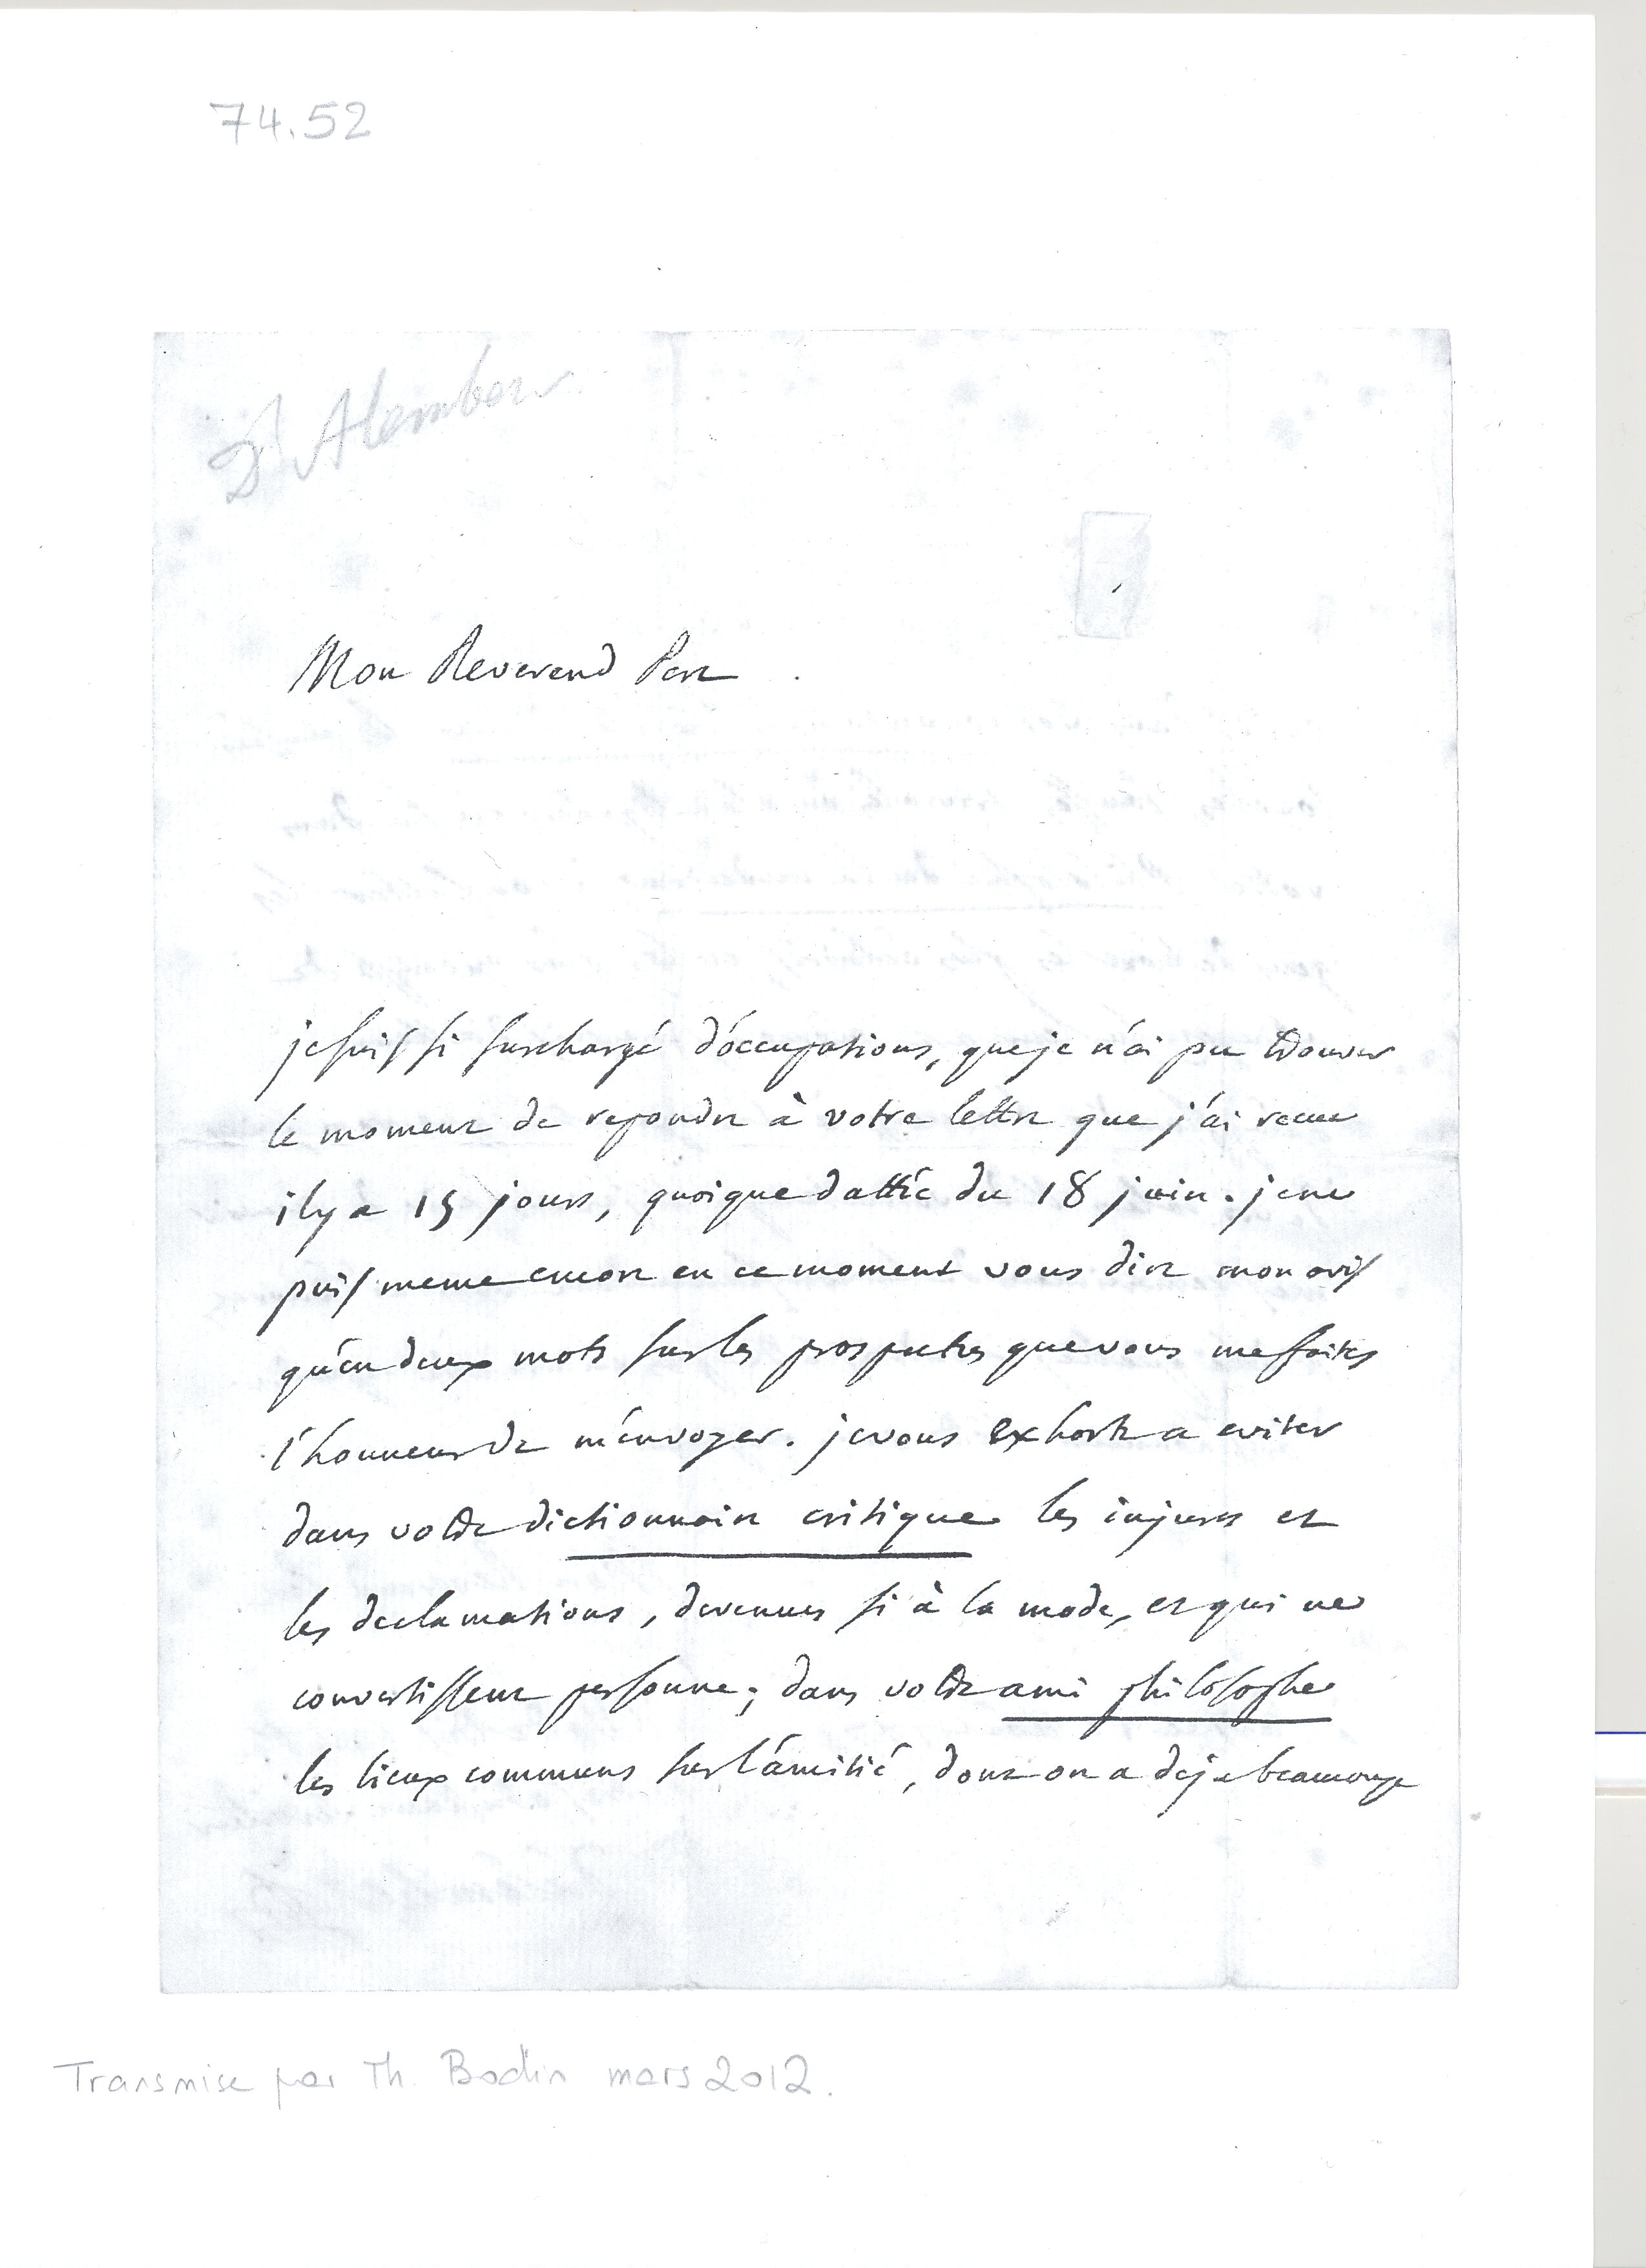 74.52
D'Alembert
Mon Reverend Pere
je suis si surchargé d'occupations, que je n'ai pu trouver
le moment de repondre à votre lettre que j'ai recue
il y a 15 jours, quoique dattée du 18 juin. je ne
puis meme encore en ce moment vous dire mon avis
qu'en deux mots sur les prospectus que vous me faites
l'honneur de m'envoyer. je vous exhorte a eviter
dans votre dictionnaire critique les injures et
les declamations, devenues si à la mode, et qui ne
convertissent personne; dans votre ami philosophe
les lieux communs sur l'amitié, dont on a deja beaucoup
Transmise par Th. Bodin mars 2012.